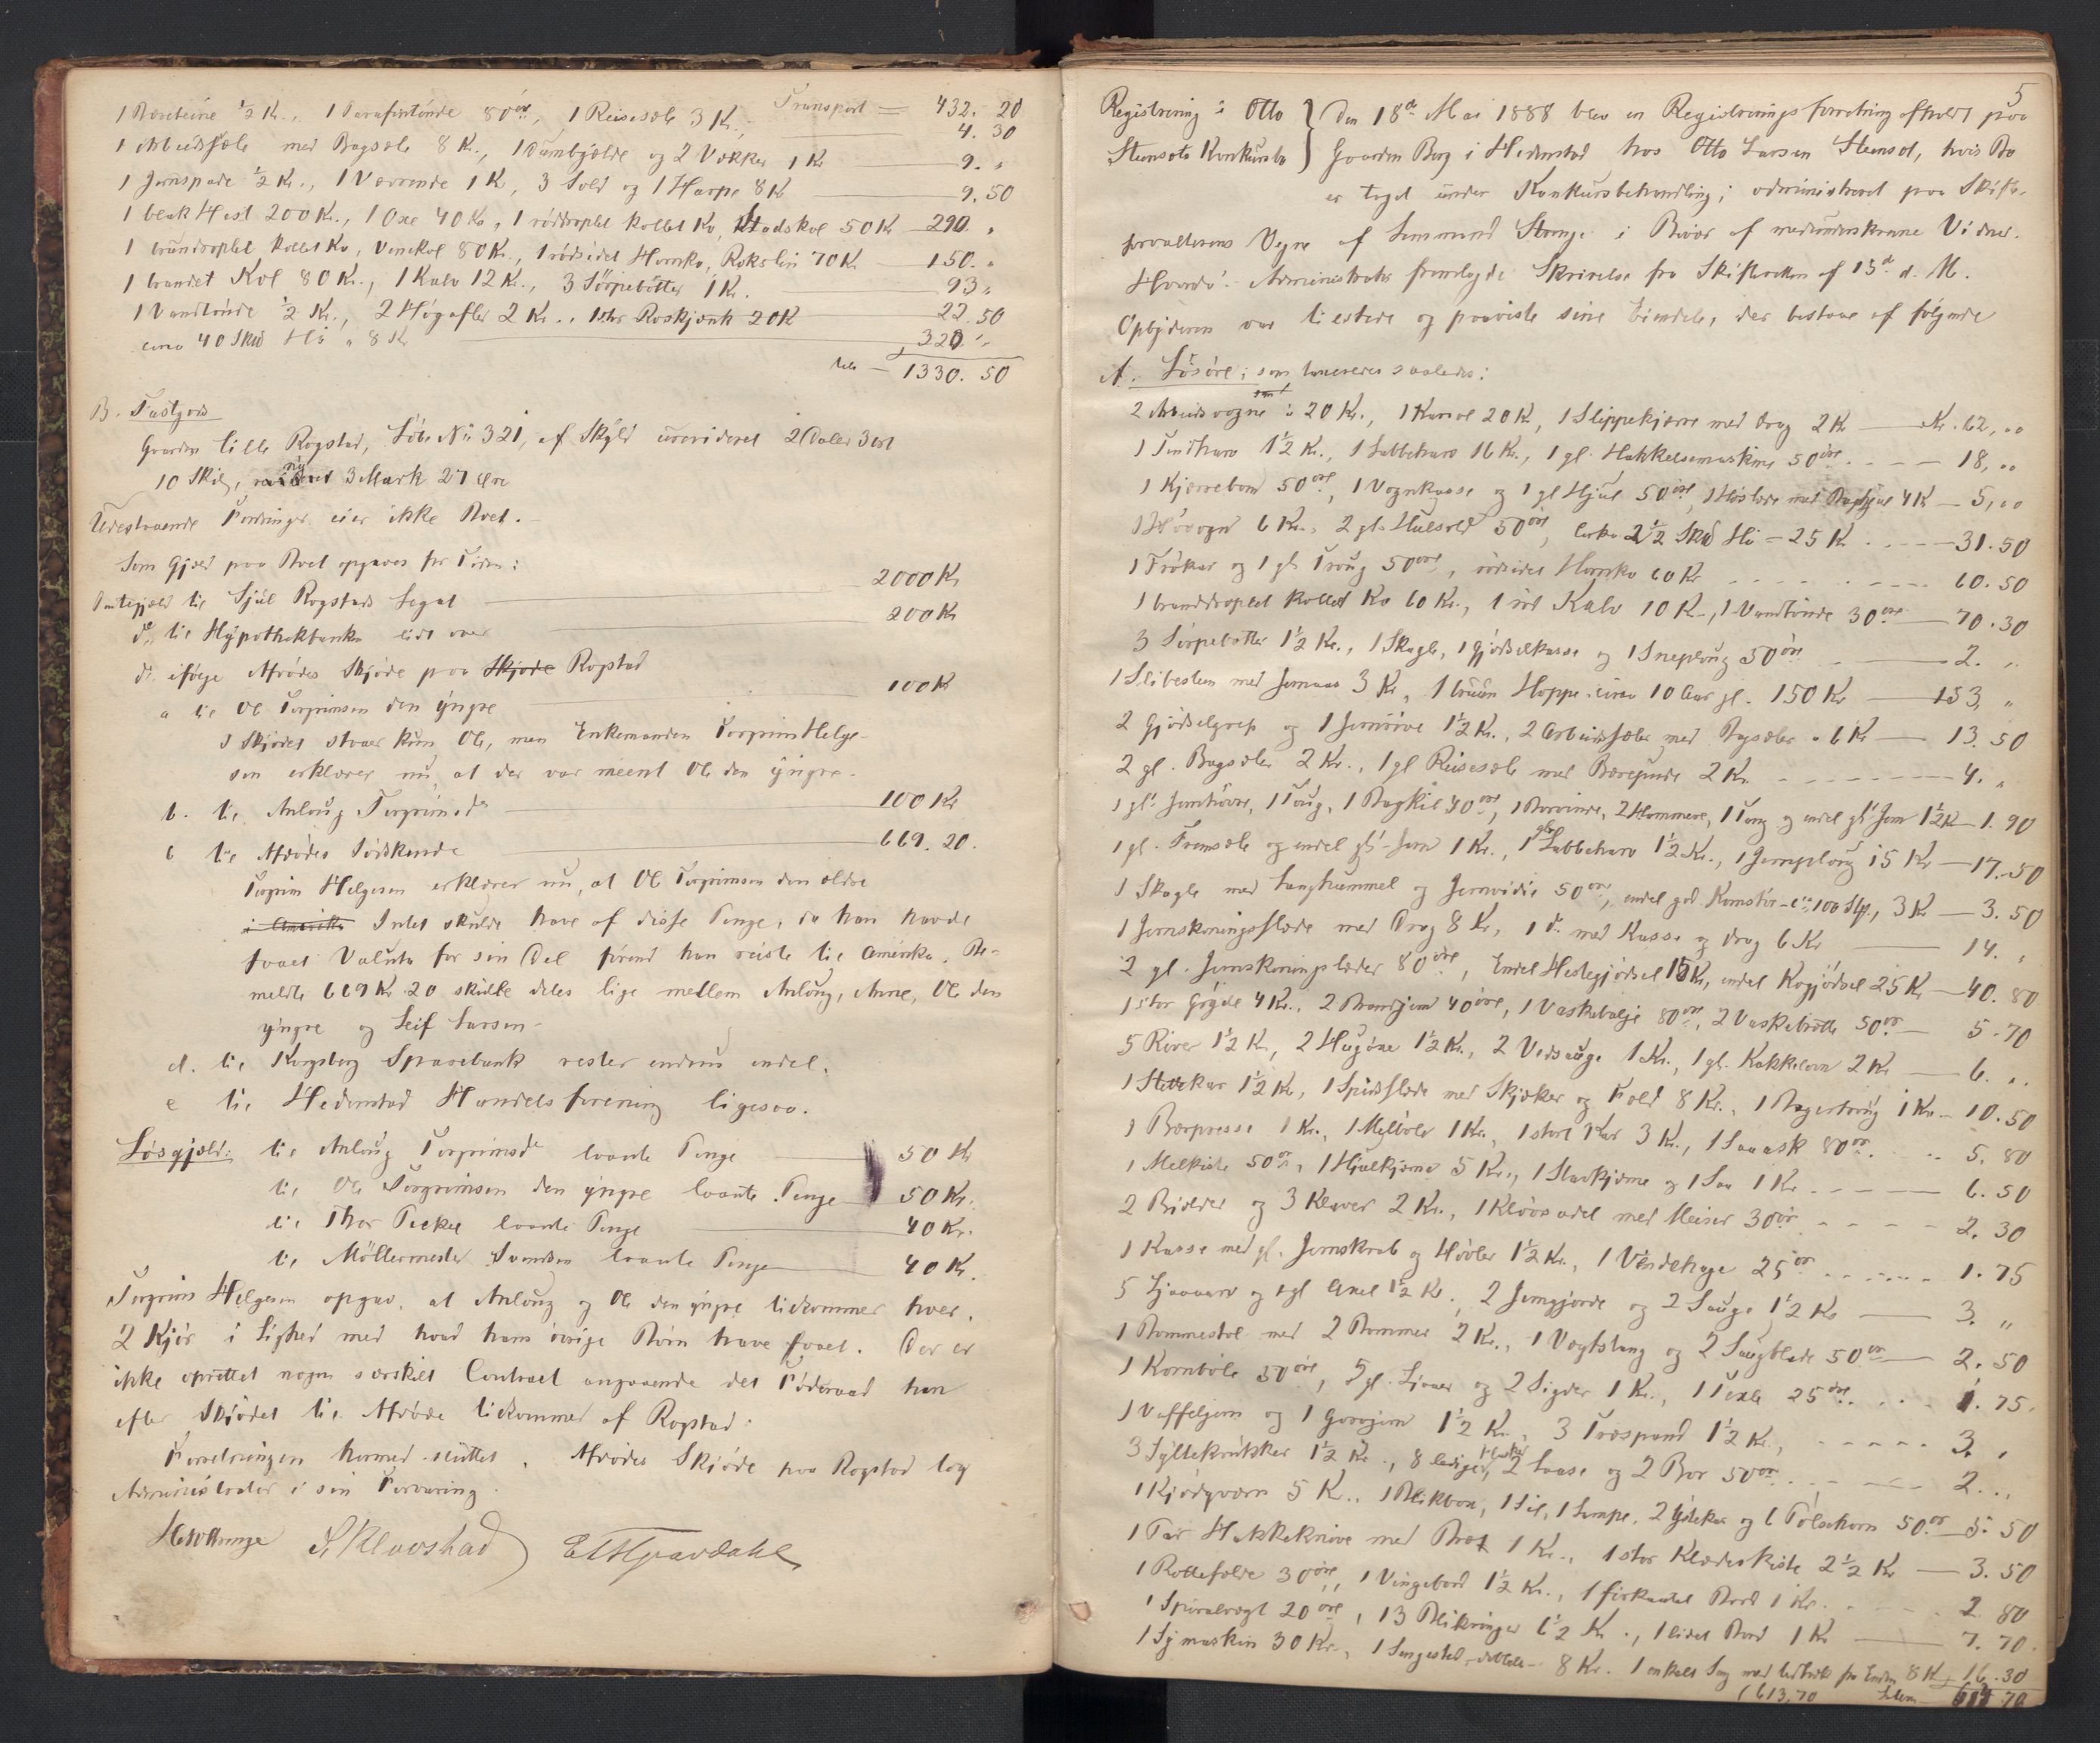 Transport = 432. 20
1 Bæreteine ½ Kr., 1 Parafintönde 80 ör, 1 Reisesæle 3 Kr. 4. 30
1 Arbeidssæle med Bogsæle 8 Kr., 1 Dumbjælde og 2 Vækker 1 Kr 9. "
1 Jernspade ½ Kr., 1 Værrende 1 Kr, 3 Sold og 1 Harpe 8 Kr 9. 50
1 blak Hest 200 Kr., 1 Oxe 40 Kr, 1 rödtoplet kollet Ko, Stadskol 50 Kr 290. "
1 brundroplet kollet Ko, Venekol 80 Kr., 1 rödsidet Hornko, Rokslin 70 Kr 150. "
1 brandet Kol 80 Kr., 1 Kalv 12 Kr., 3 Sörpebötter 1 Kr. 93 "
1 Vandtönde ½ Kr., 2 Högafler 2 Kr., 1 stor Roskjænk 20 Kr 22. 50
circa 40 Skd Hö a 8 Kr 320 "
tils – 1330. 50
B. Fastgods
Gaarden lille Rogstad, Löbe No 321, af Skyld urevideret 2 Daler 3 ort
10 Skil, ny 3 Mark 27 Öre
Udestaaende Fordringer eier ikke Boet.
Som Gjæld paa Boet opgaves for Tiden:
Pantegjæld til Sjul Rogstads Legat 2000 Kr
do til Hypothekbanken lidt over 200 Kr
do ifölge Afdödes Skjöde paa Skjöde Rogstad
a til Ole Torgrimsen den yngre 100 Kr
I Skjödet staaer kun Ole, men Enkemanden Torgrim Helge-
sen erklærer nu, at der var meent Ole den yngre.
b. til Anlaug Torgrimsdr 100 Kr
c til Afdödes Södskende 669. 20.
Torgrim Helgesen erklærer nu, at Ole Torgrimsen den ældre
i Amerika Intet skulde have af disse Penge, da han havde
faaet Valuta for sin Del förend han reiste til Amerika. Be-
meldte 669 Kr 20 skulle deles lige mellem Anlaug, Anne, Ole den
yngre og Leif Larsen.
d. til Kongsberg Sparebank rester endnu endel.
e til Hedenstad Handelsforening ligesaa.
Lösgjæld: til Anlaug Torgrimsdr laante Penge 50 Kr
til Ole Torgrimsen den yngre laante Penge 50 Kr.
til Thor laante Penge 40 Kr.
til Möllermester Svendsen laante Penge 40 Kr.
Torgrim Helgesen opgav, at Anlaug og Ole den yngre tilkommer hver
2 Kjör i Lighed med hvad hans övrige Börn have faaet. Der er
ikke oprettet nogen særskilt Contract angaaende det Föderaad han
efter Skjödet til Afdöde tilkommer af Rogstad.
Forretningen hermed sluttet. Afdödes Skjöde paa Rogstad tog
Administrator i sin Forvaring.
S. Klaavstad
5
Registrering i Otto
Steensets Konkursbo
Den 18de Mai 1888 blev en Registreringsforretning afholdt paa
Gaarden Berg i Hedenstad hos Otto Larsen Steenset, hvis Bo
er taget under Konkursbehandling; administreret paa Skifte-
forvalterens Vegne af Lensmand Strænge i Bivær af medunderskrevne Vidner.
Hvorda: Administrator fremlagde Skrivelse fra Skifteretten af 15de d. M.
Opbyderen var tilstede og paaviste sine Eiendele, der bestaae af fölgende
A. Lösöre; som taxeredes saaledes:
2 Arbeidsvogne a 20 Kr., 1 Kariol 20 Kr, 1 Slippekjærre med Drag 2 Kr Kr. 62, "
1 Tindharv 1½ Kr., 1 Labbeharv 16 Kr., 1 gl. Hakkelsemaskine 50 öre 18, "
1 Kjærrebom 50 öre, 1 Vognkasse og 1 gl Hjul 50 öre, 1 Höslæde med Baghjul 4 Kr 5, "
1 Hövogn 6 Kr., 2 gl. Hulsold 50 öre, cirka 2½ Skd Hö = 25 Kr 31. 50
1 Frökar og 1 gl. Traug 50 öre, rödsidet Hornko 60 Kr 60. 50
1 branddroplet kollet Ko 60 Kr., 1 röd Kalv 10 Kr., 1 Vandtönde 30 öre 70. 30
3 Sörpebötter 1½ Kr., 1 Skagle, 1 Gjödselkasse og 1 Sneploug 50 öre 2. "
1 Slibesten med Jernaas 3 Kr, 1 bruun Hoppe circa 10 Aar gl. 150 Kr 153. "
2 Gjödselgreb og 1 Jernröve 1½ Kr., 2 Arbeidssæler med Bogsæler a 6 Kr 13. 50
2 gl. Bogsæler 2 Kr., 1 gl Reisesæle med Bærepude 2 Kr. 4. "
1 gl. Jernhövre, 1 Taug, 1 Bogkil 40 öre, 1 Borvinde, 2 Hammere, 1 Tang og endel gl. Jern 1½ Kr 1. 90
1 gl. Fremsæle og endel gl. Jern 1 Kr., 1 gl. Labbeharv 1½ Kr., 1 Jernploug 15 Kr 17. 50
1 Skagle med Langhummel og Jernvidie 50 öre, endel god Kornstör - ca 100 Stk., 3 Kr 3. 50
1 Jernskoningsslæde med Drag 8 Kr, 1 do med Kasse og Drag 6 Kr 14. "
2 gl. Jernskoningslæder 80 öre, Endel Hestegjödsel 15 Kr, endel Kogjödsel 25 Kr 40. 80
1 stor Gryde 4 Kr., 2 Brandjern 40 öre, 1 Vaskebalje 80 öre, 2 Vaskebrætte 50 ör 5. 70
5 River 1½ Kr, 2 Hugöxe 1½ Kr., 2 Vedsauge 1 Kr., 1 gl. Kakkelovn 2 Kr 6. "
1 Stettekar 1½ Kr, 1 Spidsslæde med Skjæker og Fæld 8 Kr., 1 Bagertraug 1 Kr 10. 50
1 Bærpresse 1 Kr., 1 Melbolv 1 Kr., 1 stort Kar 3 Kr., 1 Saaask 80 ör 5. 80
1 Melkiste 50 ör, 1 Hjulkjærne 5 Kr., 1 Stavkjærne og 1 Saa 1 Kr 6. 50
2 Bjælder og 3 Klaver 2 Kr., 1 Klövsadel med Meiser 30 ör 2. 30
1 Kasse med gl. Jernskrab og Hövler 1½ Kr., 1 Vendehage 25 ör 1. 75
5 Ljaaorv og 1 gl Axel 1½ Kr., 2 Jerngjorde og 2 Sauge 1½ Kr 3. "
1 Bommestol med 2 Bommer 2 Kr., 1 Vægtstang og 2 Saugblade 50 ör 2. 50
1 Kornböle 50 öre, 5 gl. Ljaaer og 2 Sigder 1 Kr., 1 Texle 25 öre 1. 75.
1 Vaffeljern og 1 Gorojern 1½ Kr., 3 Træspand 1½ Kr., 3. "
3 Syltekrukker 1½ Kr., 8 ledige Flasker, 2 Laase og 2 Bor 50 ör 2. "
1 Kjödqværn 5 Kr., 1 Blikbox, 1 Sil, 1 Lampe, 2 Ystekar og 6 Pölsehorn 50 ör 5. 50
1 Par Hakkeknive med Bræt 1 Kr., 1 stor Klædeskiste 2½ Kr 3. 50
1 Rottefælde 30 öre, 1 Vingebord 1½ Kr., 1 firkantet Bord 1 Kr. 2 80
1 Spiralvægt 20 öre, 13 Blikringer 6½ Kr., 1 lidet Bord 1 Kr 7. 70.
1 Symaskin 30 Kr., 1 Sengested dobbelt 8 Kr. 1 enkelt Seng med 8 Kr 16. 30
(613,70 614 70